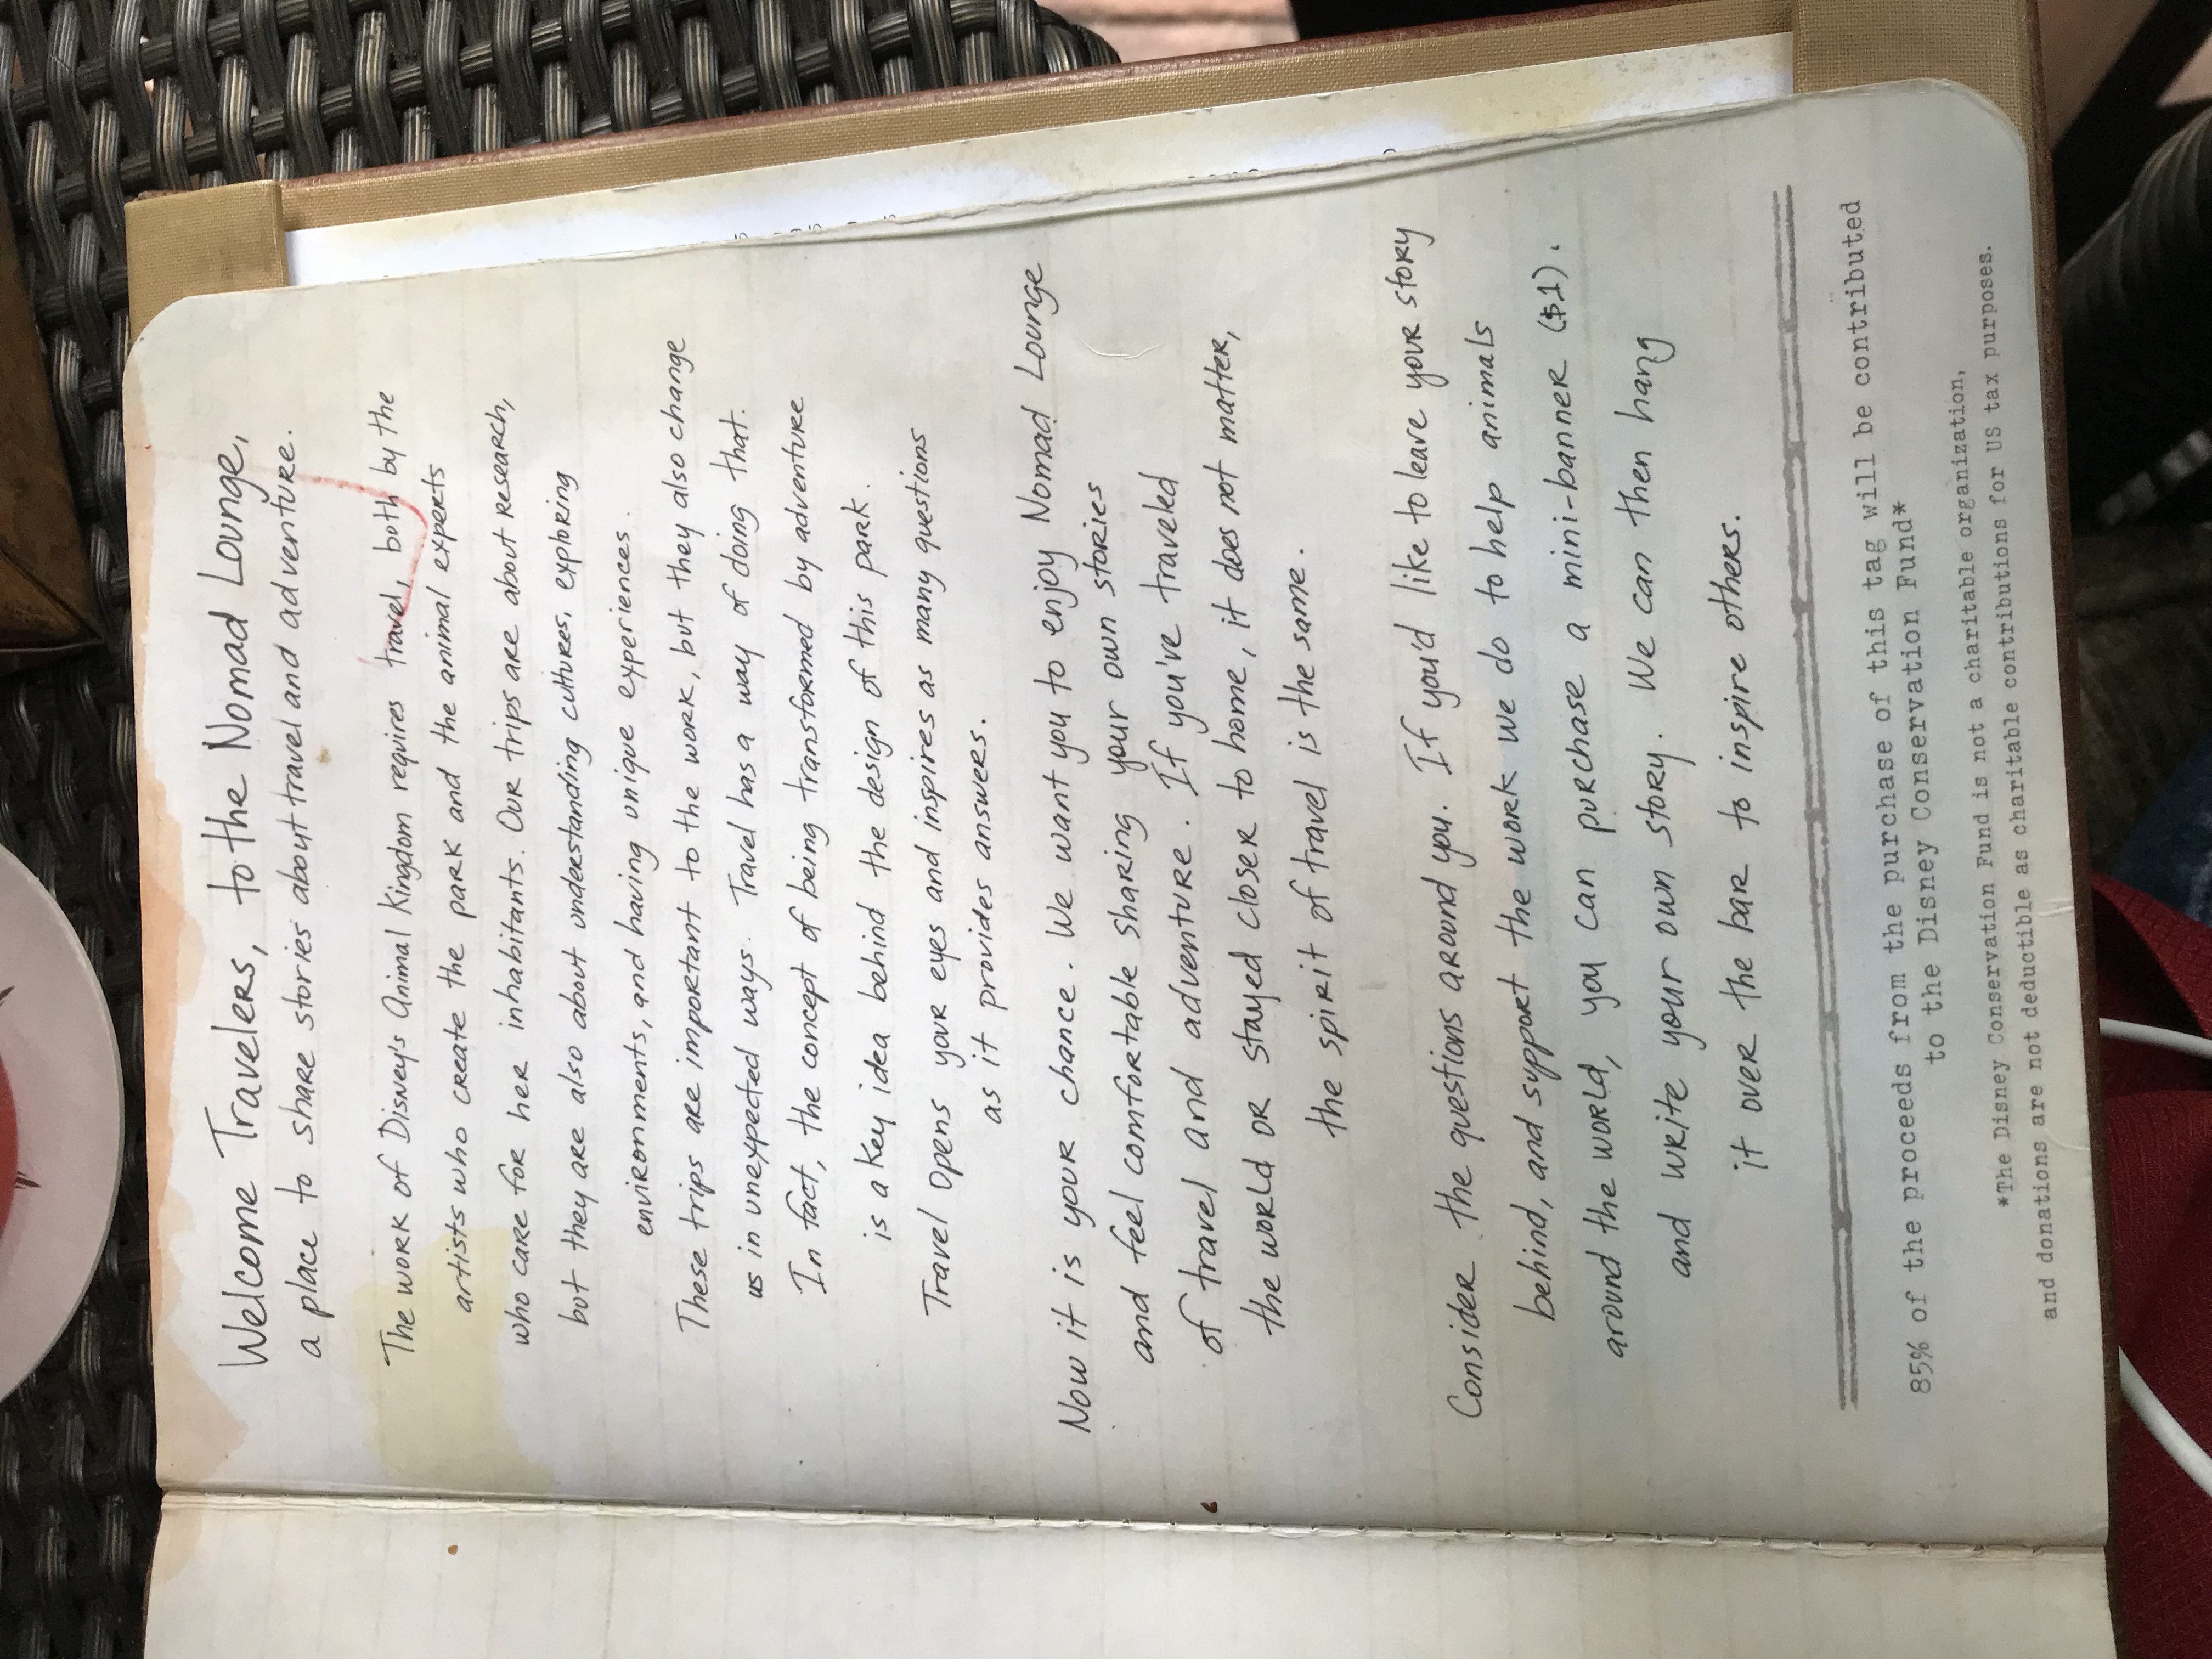 Welcome Travelers, to the Nomad Lounge,
a place to share stories about travel and adventure.
The work of Disney's Animal Kingdom requires travel, both by the
artists who create the park and the animal experts
who care for her inhabitants. Our trips are about research,
but they are also about understanding cultures, exploring
environments, and having unique experiences.
These trips are important to the work, but they also change
us in unexpected ways. Travel has a way of doing that.
In fact, the concept of being transformed by adventure
is a key idea behind the design of this park.
Travel opens your eyes and inspires as many questions
as it provides answers.
Now it is your chance. We want you to enjoy Nomad Lounge
and feel comfortable sharing your own stories
of travel and adventure. If you've traveled
the world or stayed closer to home, it does not matter,
the spirit of travel is the same.
Consider the questions around you. If you'd like to leave your story
behind, and support the work we do to help animals
around the world, you can purchase a mini-banner ($1).
and write your own story. We can then hang
it over the bar to inspire others.
85% of the proceeds from the purchase of this tag will be contributed
to the Disney Conservation Fund*
*The Disney Conservation Fund is not a charitable organization,
and donations are not deductible as charitable contributions for US tax purposes.